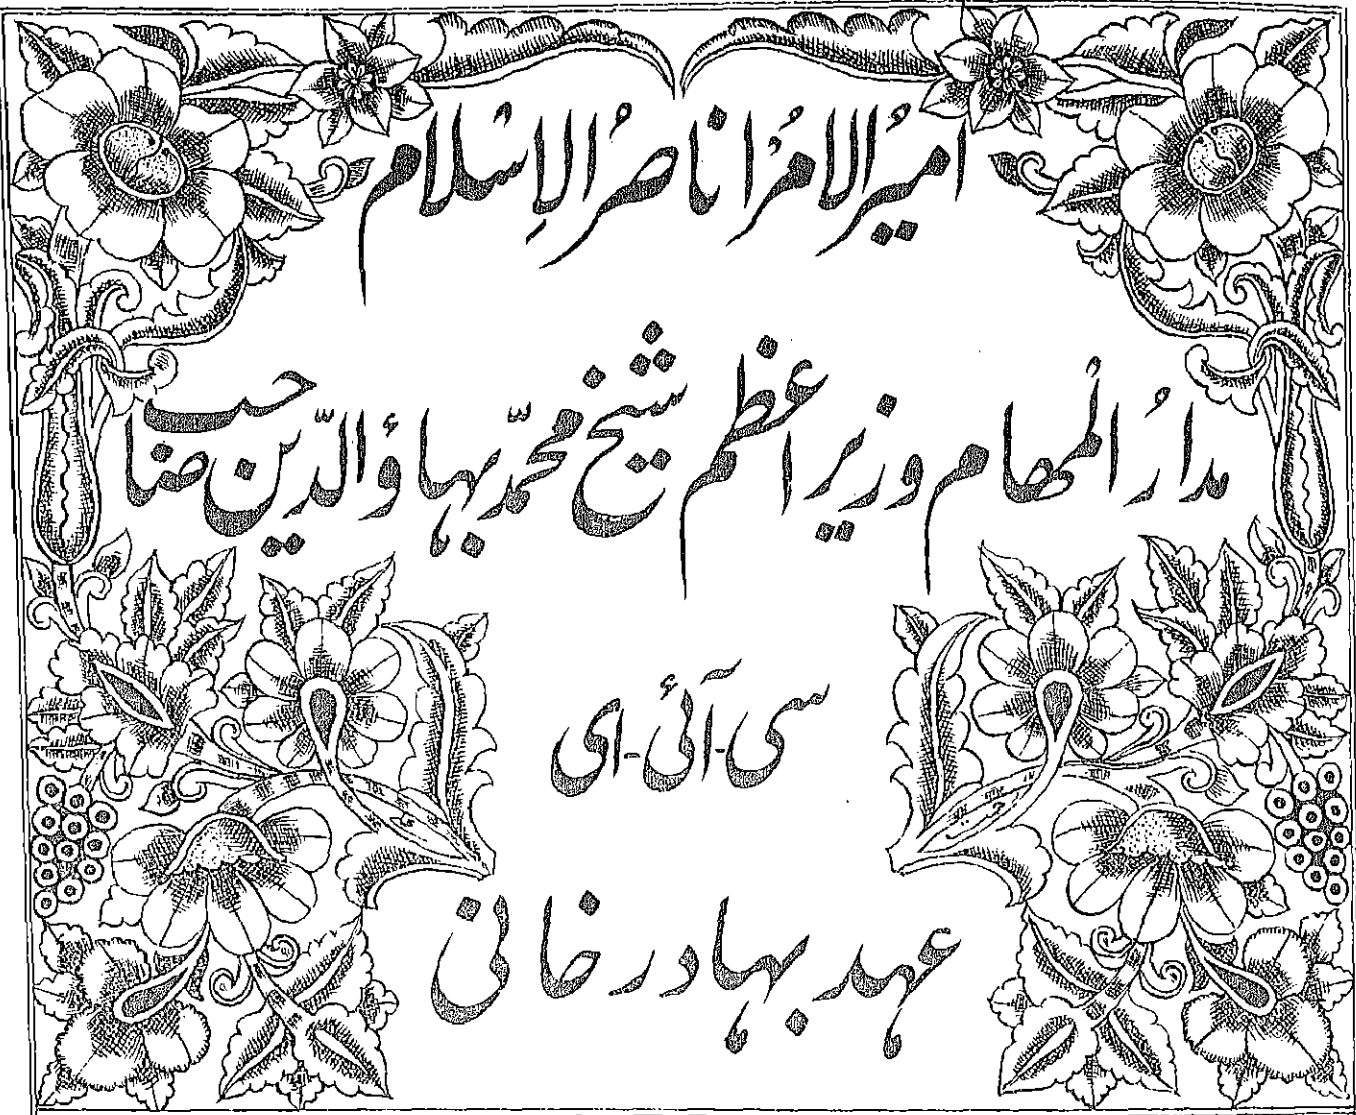 امیرُ الامرُا ناصرُ الاِسلام
مدارُ المَہام وزیر اعظم شیخ محمدّ بہاؤ الدّین صاحب
سی-آئی-ای
عہد بہادر خانی